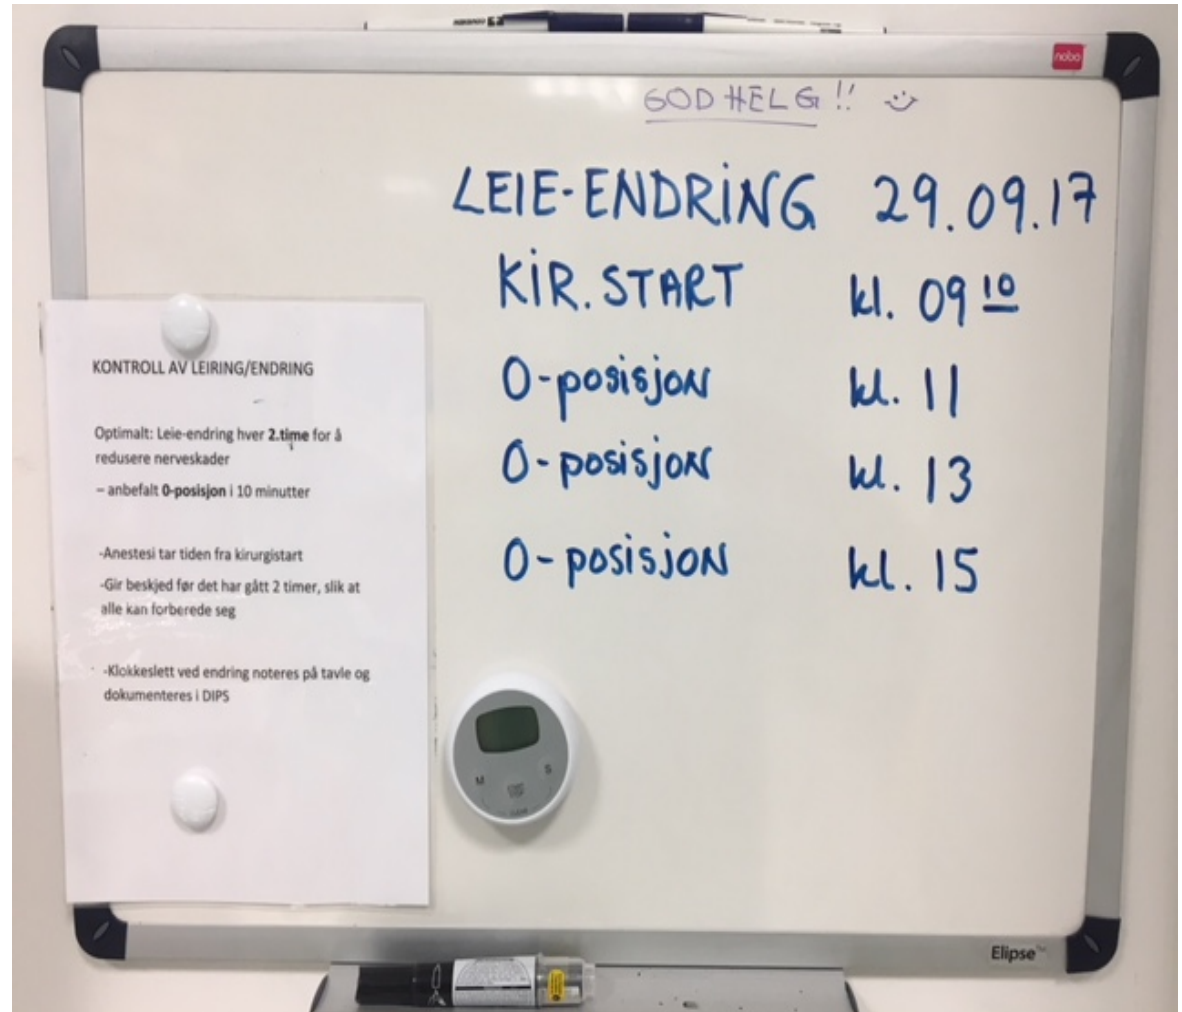 nobo
GOD HELG!! 
LEIE-ENDRING 29.09.17
KIR. START kl. 09 10
0-posisjon kl. 11
0-posisjon kl. 13
0-posisjon kl. 15
KONTROLL AV LEIRING/ENDRING
Optimalt: Leie-endring hver 2.time for å
redusere nerveskader
– anbefalt 0-posisjon i 10 minutter
-Anestesi tar tiden fra kirurgistart
-Gir beskjed før det har gått 2 timer, slik at
alle kan forberede seg
-Klokkeslett ved endring noteres på tavle og
dokumenteres i DIPS
M S
Elipse™